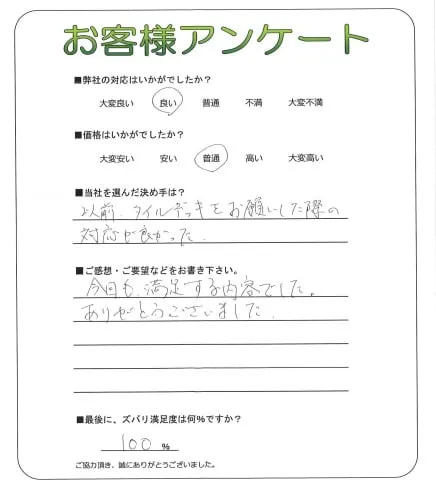 お客様アンケート
■弊社の対応はいかがでしたか?
大変良い 良い 普通 不満 大変不満
■価格はいかがでしたか?
大変安い 安い 普通 高い 大変高い
■当社を選んだ決め手は?
以前、タイルデッキをお願いした際の
対応が良かった.
■ご感想・ご要望などをお書き下さい。
今回も、満足する内容でした。
ありがとうございました.
■最後に、ズバリ満足度は何%ですか?
100 %
ご協力頂き、誠にありがとうございました。